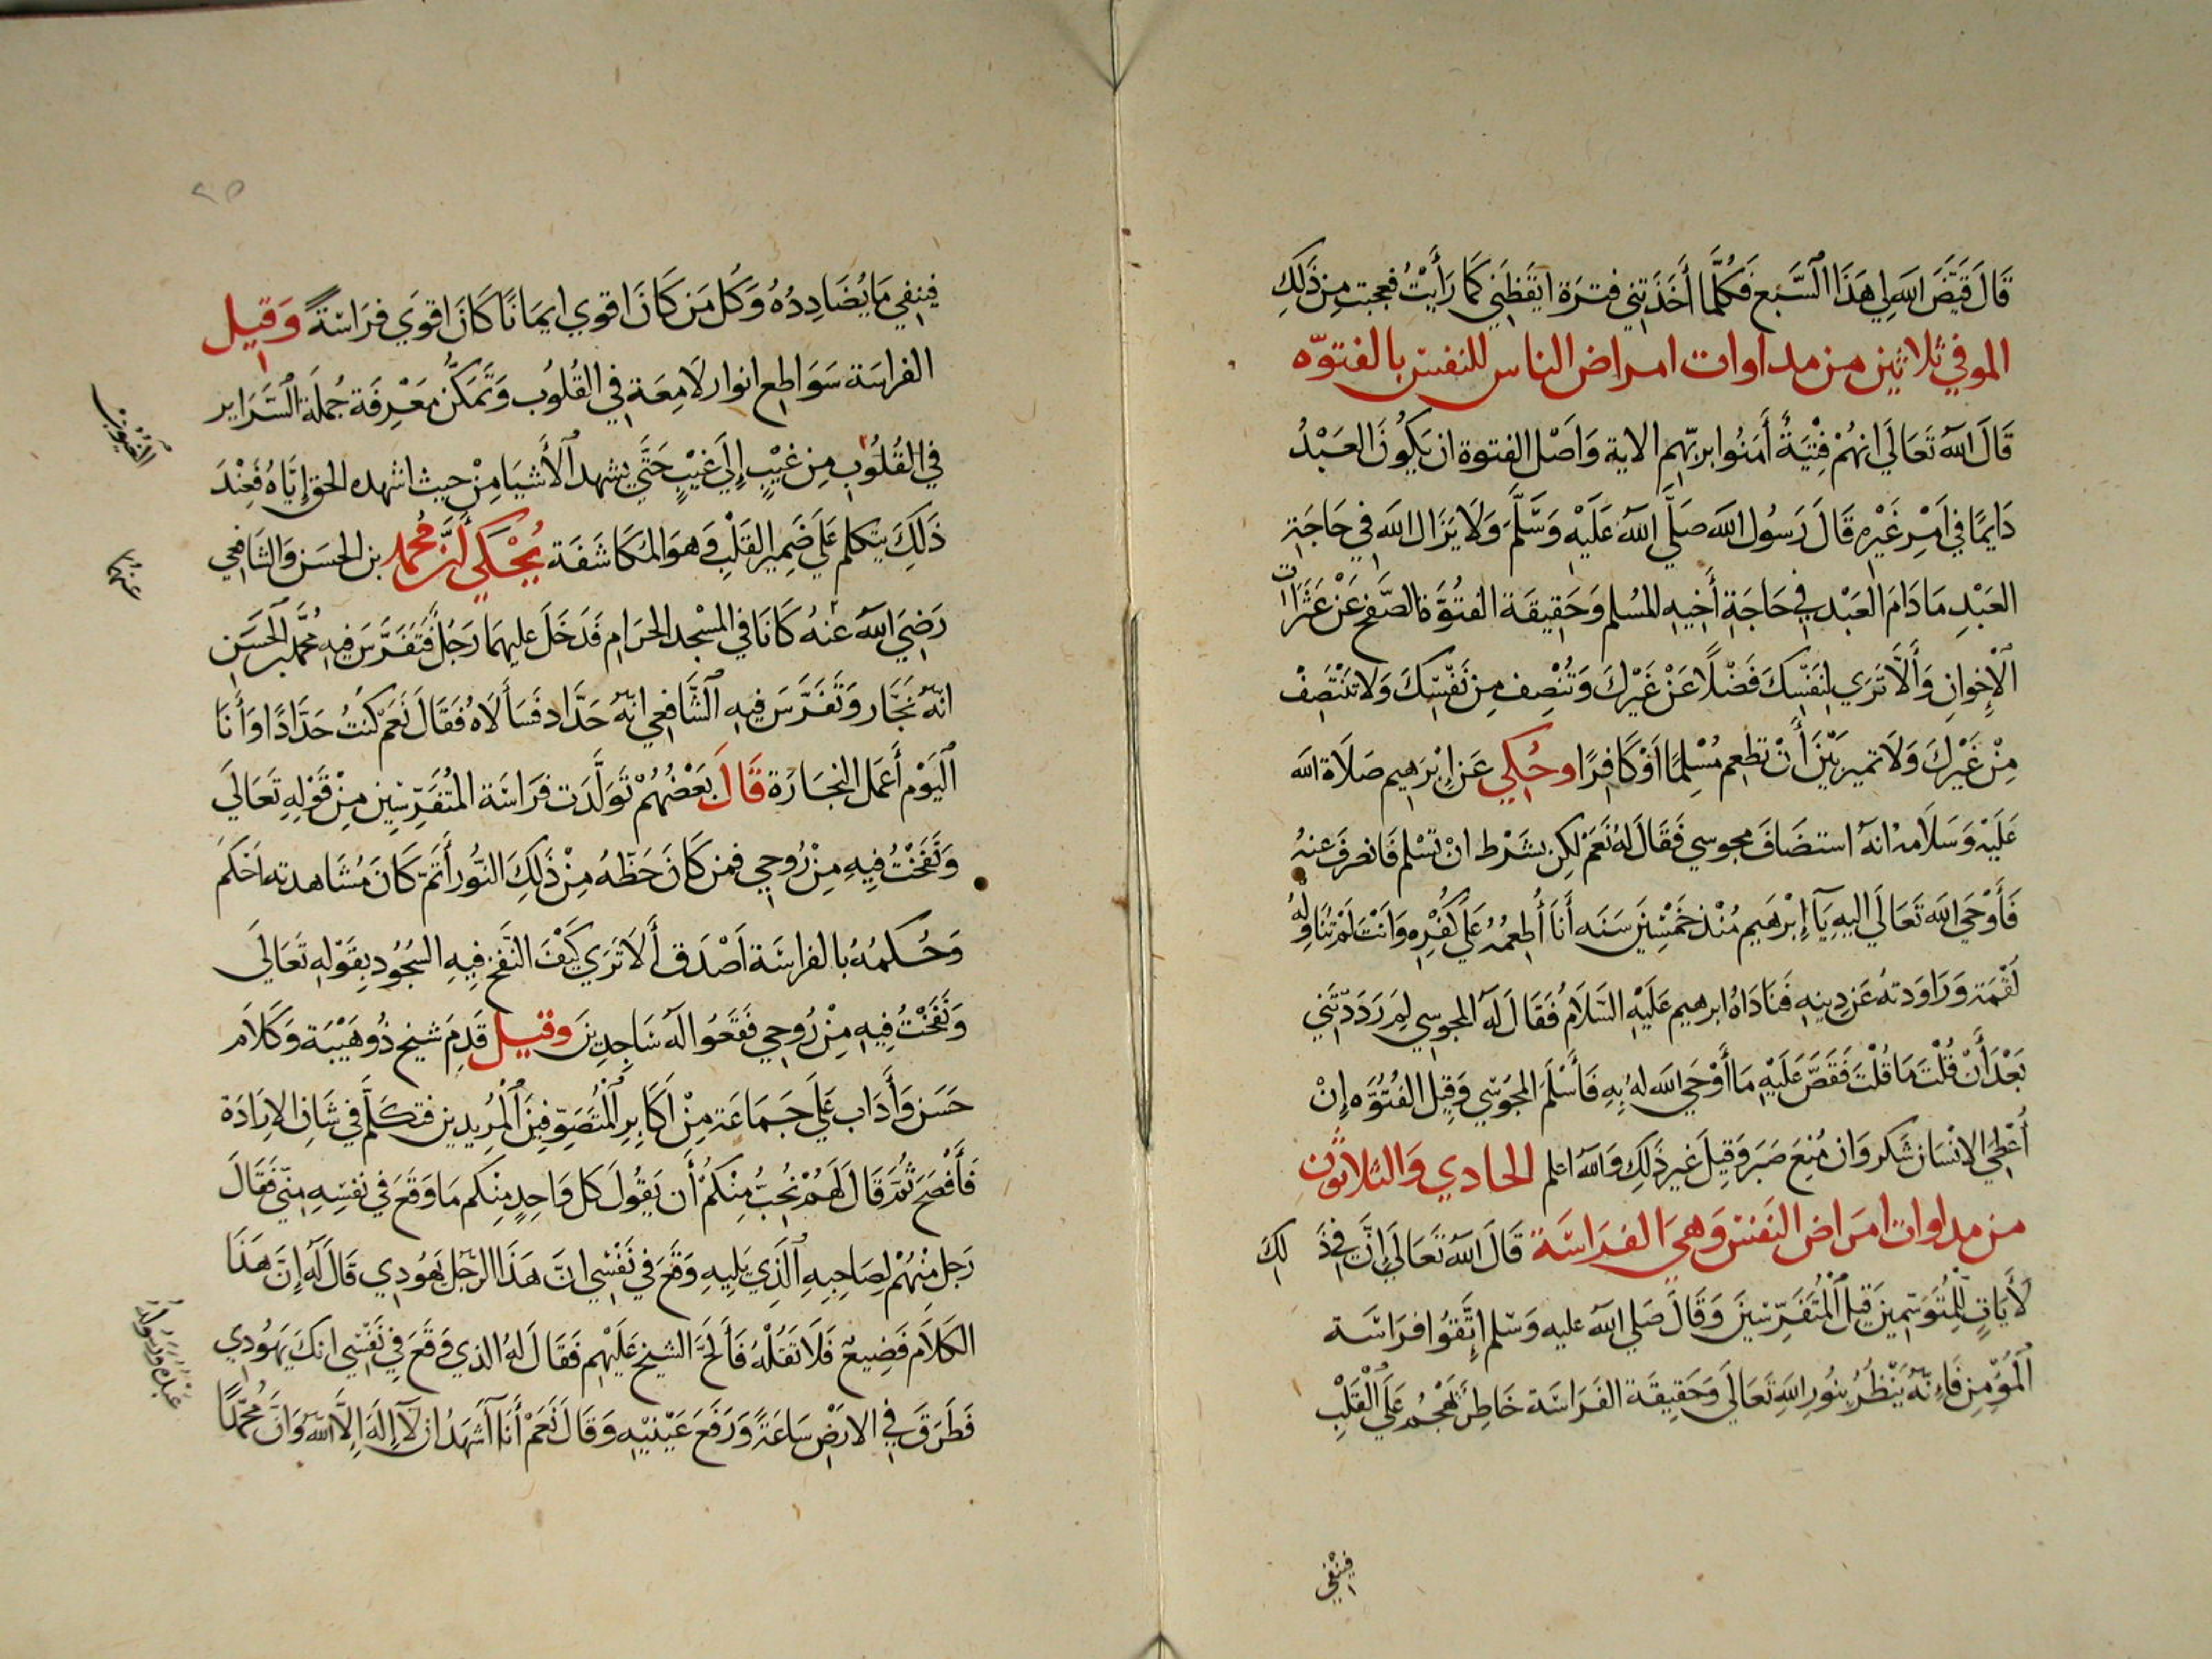 قَالَ قَيَّضَ الله لِي هَذَا السَّبُع فَكُلَّمَا أَخَذَتْنِي فترَة ايقَظَنِي كَمَا رَأَيْتُ فعجبت مِن ذَلِكَ
الموفي ثلاثين من مداوات امراض الناس للنفس بالفتوّه
قَالَ اللهُ تَعَالَي انهُمْ فِتْيَةٌ أَمَنُوا بربّهم الاية وَاَصْل الفتوة ان يَكُونَ العَبْدُ
دَايمًا في اَمْرِ غَيْرِهِ قَالَ رَسُول الله صَلَّي اللهُ عَلَيْهِ وَسَّلَّمَ وَلَا يَزَال الله فِي حَاجَةِ
العَبْدِ مَا دَامَ العَبْد فِي حَاجَةِ أَخِيهِ المُسلم وَحَقِيقَة الفتُوَّة الصَّفح عَنْ عَثَرَات
الْإِخوانِ وَأَلَّا تَرَي لِنَفْسِكَ فَضْلًا عَنْ غَيْرِكَ وَتُنْصِف مِن نَفْسِكَ وَلَا تَنْتَصِفْ
مِنْ غَيْرِكَ وَلَا تميز بَيْنَ أَنْ تطعم مُسْلِمًا اَوْ كَافِرًا وحُكِي عَن إِبْرَهِيم صَلَاة الله
عَلَيْهِ وَسَلَامه انهُ استضَافَ مجوسي فَقَالَ لهُ نَعَمْ لكِن بشَرْط انْ تسْلم فَانصرفَ عنهُ
فَأَوْحَي الله تَعَالَي اليهِ يَآ إِبْرَهَيم مُنْذ خَمْسِينَ سَنَه أَنَا أُطعِمهُ عَلَي كُفْرِه وَانْتَ لَمْ تُنَاوِلْهُ
لقْمَة وَرَاوَدتهُ عَن دِينِهِ فنَادَاهُ ابرهيم عَلَيْهِ السَلَام فَقَالَ لَهُ المجوسِي لِمَ رَدَدتَّنِي
بَعْدَ أَنْ قُلْتَ مَا قُلْتَ فَقَصَّ عَلَيْهِ مَا أَوْحَي الله لهُ بِهِ فَأَسْلَمَ المجُوسِي وَقِيل الفُتُوَّه إِنْ
أُعْطِيَ الاِنْسَان شَكر وَان مُنِعَ صَبَر وَقِيلَ غَير ذَلِكَ وَاللهُ اعلم الحادي وَالثلاثون
من مداوات امَراض النَفس وَهيَ الفراسَة قَالَ اللهُ تَعَالَي إِنَّ فِي ذَلِكَ
لأَيَاتٍ لِلْمُتَوَسّمِينَ قِيلَ الْمُتَفَرِّسِينَ وَقَالَ صَلي اللهُ عليه وَسَلم اِتَّقُوا فرَاسَة
الْمُؤْمِنِ فَإِنَّهُ يَنْظُرُ بِنُورِ اللهِ تَعَالَي وَحَقِيقَة الفَرَاسَة خَاطِر يَهْجُم عَلَي الْقَلْبِ
فينفي
فينفِي مَا يُضَادِدُهُ وَكُل مَن كَانَ اقوي ايمَانًا كَانَ اقوَي فرَاسَةً وَقيل
الفراسَة سَوَاطِع انوار لَامِعَة فِي القُلُوب وَتَمَكّنُ مَعْرِفَة جُملَة السَّرَايِر
في القُلُوبِ مِن غيْبٍ إِلَي غَيْبٍ حَتَّي يشهد الأَشيَا مِنْ حيث اشهده الحق إِيَّاهُ فَعِنْدَ
ذَلِكَ يتكلم عَلَي ضَمِير القَلْبِ وَهوَ المُكَاشَفَة يُحْكَي أَنَّ مُحمد بن الحسَن وَالشَافعِي
رَضِيَ اللهُ عنهُ كَانَا فِي المسْجد الحَرَامِ فَدَخَلَ عليهمَا رَجُلٌ فَتَفَرَّسَ فِيهِ مُحَمَّد بن الحَسَن
انهُ نجَّار وَتَفَرَّسَ فيهِ الشَّافعِي انهُ حَدَّاد فَسَأَلَاهُ فَقَالَ نَعَمْ كنتُ حَدَّادًا وَأَنَا
الْيَوْم أَعْمَل النجَارَة قَالَ بَعْضُهُمْ تَوَلَّدَت فرَاسَة المُتَفَرِّسِين مِنْ قَوْلِهِ تَعَالَي
وَنَفَخْتُ فِيهِ مِنْ رُوحِي فمن كَانَ حَظُّهُ مِنْ ذَلِكَ النّورُ أَتَمّ كَانَ مُشَاهدته اَحْكَم
وَحُكمُهُ بِالفراسَة اَصْدَق أَلَا تَرَي كَيْفَ النَّفخ فِيهِ السُجُود بِقَوْلِهِ تَعَالَي
وَنَفَخْتُ فِيهِ مِنْ رُوحِي فَقَعُوا لَهُ سَاجِدِينَ وقيل قَدِمَ شيخ ذُو هَيْبَة وَكَلَام
حَسَن وَأَدَاب عَلَي جَمَاعَة مِنْ اَكَابِرِ الْمُتَصَوِّفِينَ الْمُرِيدِين فتكلَّم فِي شَان الاِرَادَة
فَأَفْصَحَ ثُمَّ قَالَ لَهُمْ نُحِبُّ مِنْكُمْ أَن يَقُولَ كل وَاحِدٍ مِنكم مَا وَقَعَ فِي نفسِهِ مِنّي فَقَالَ
رَجل مِنْهُمْ لِصَاحِبِهِ الَّذِي يَلِيهِ وَقَعَ فِي نَفْسِي انَّ هَذَا الرَّجُل يَهُودِي قَالَ لَهُ إِنَّ هَذَا
الكَلَام فَضِيع فَلَا تَقُلْهُ فَأَلَحَّ الشيخ عَلَيْهِم فَقَالَ لَهُ الذي وَقَعَ فِي نَفْسِي انكَ يَهُودِي
فَطَرَقَ فِي الارْضِ سَاعَةً وَرَفَعَ عَيْنيْهِ وَقَالَ نَعَمْ أَنَا أَشهَدُ ان لَا إِلَهَ إِلَّا اللهُ وَأَنَّ مُحَمَّدًا
الغيوب
عنهما
عبده ورسوله
٢٥